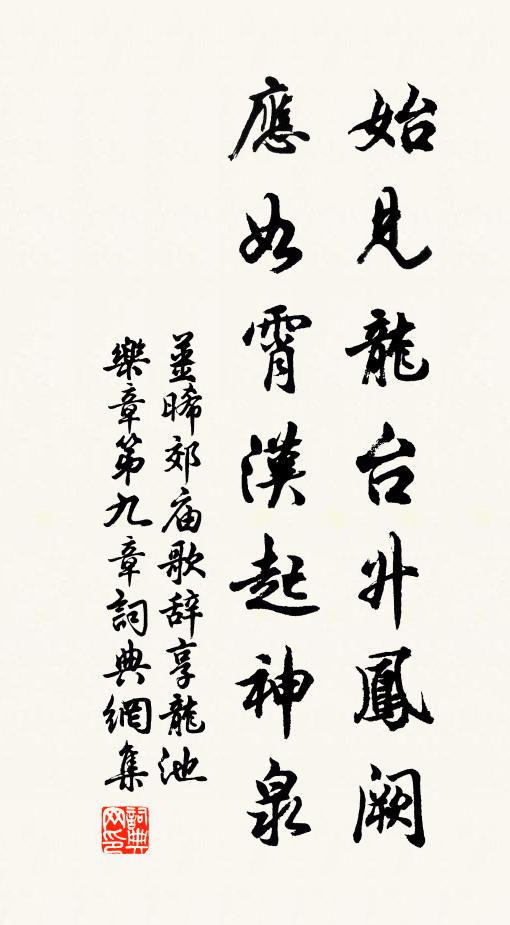 始見龍台升鳳闕
應如霄漢起神泉
姜晞郊庙歌辞享龍池
樂章第九章詞典網集
詞典
网印